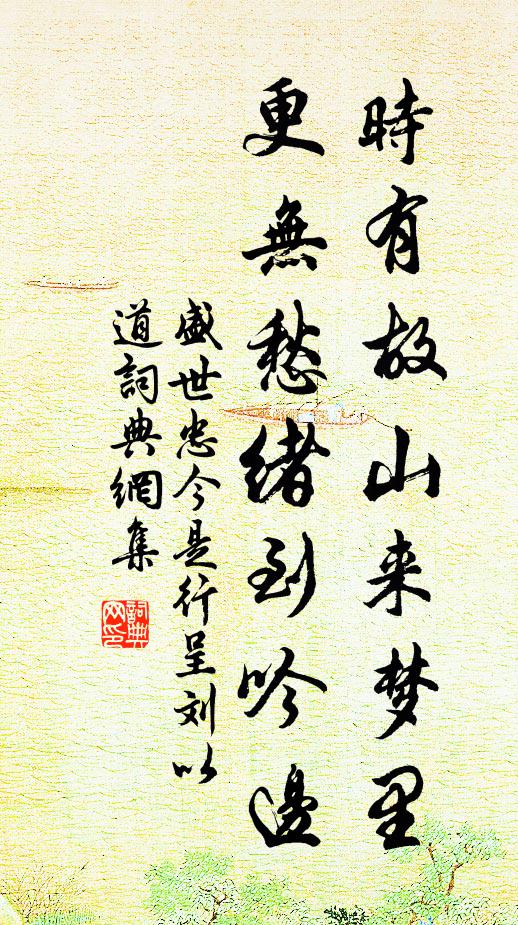 時有故山来梦里
更無愁緒到吟邊
盛世忠今是行呈刘以
道詞典網集
詞典
网印